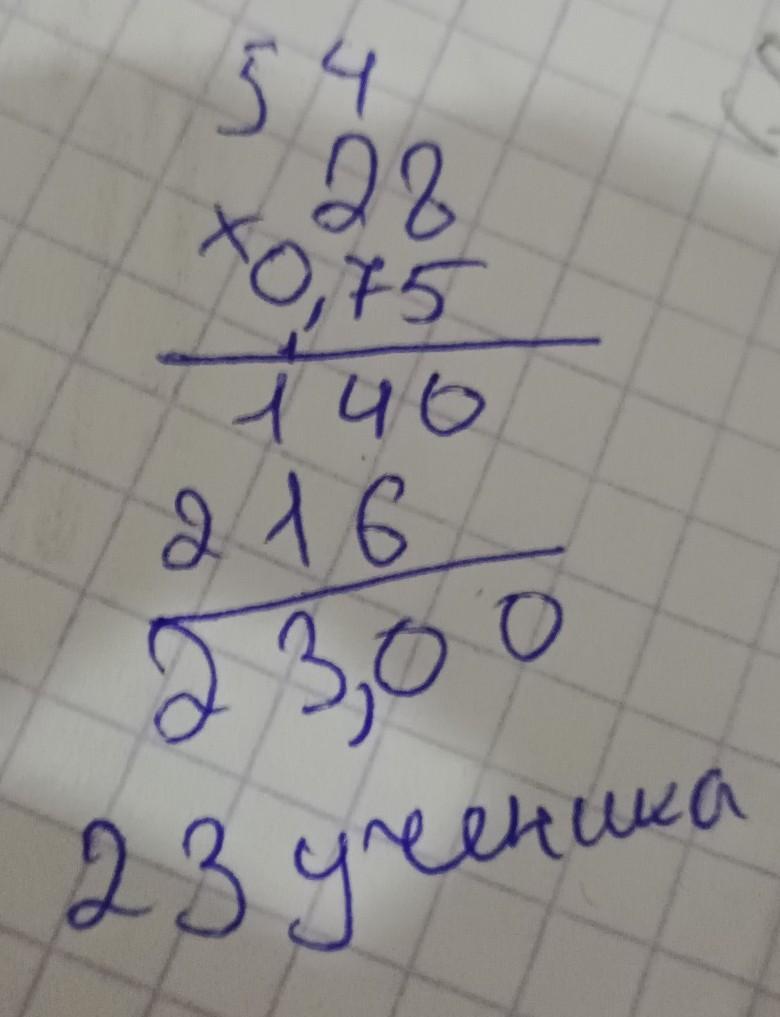 5 4
28
× 0,75
1
140
216
23,00
23 ученика